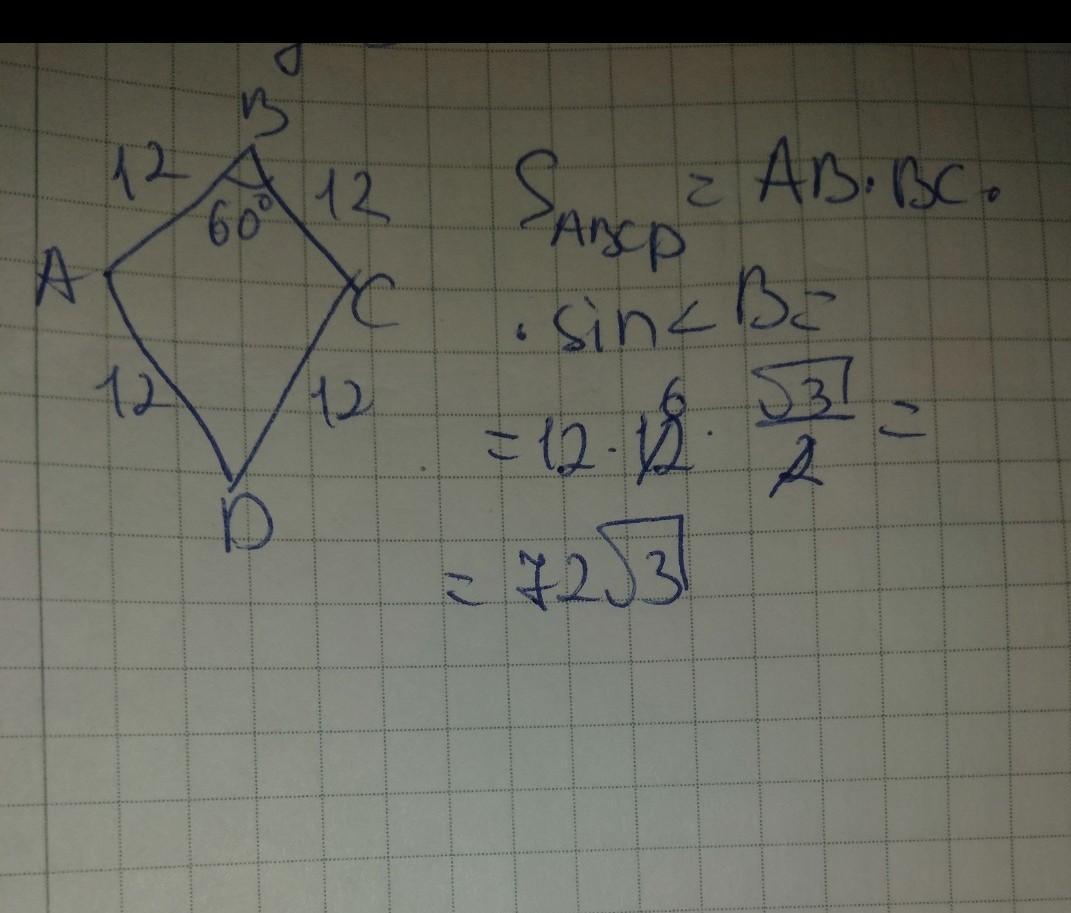 B
12
12
60°
A
C
12
12
D
S_ABCD = AB · BC ·
· sin < B =
= 12 · 12 6 · √3/2 =
= 72√3